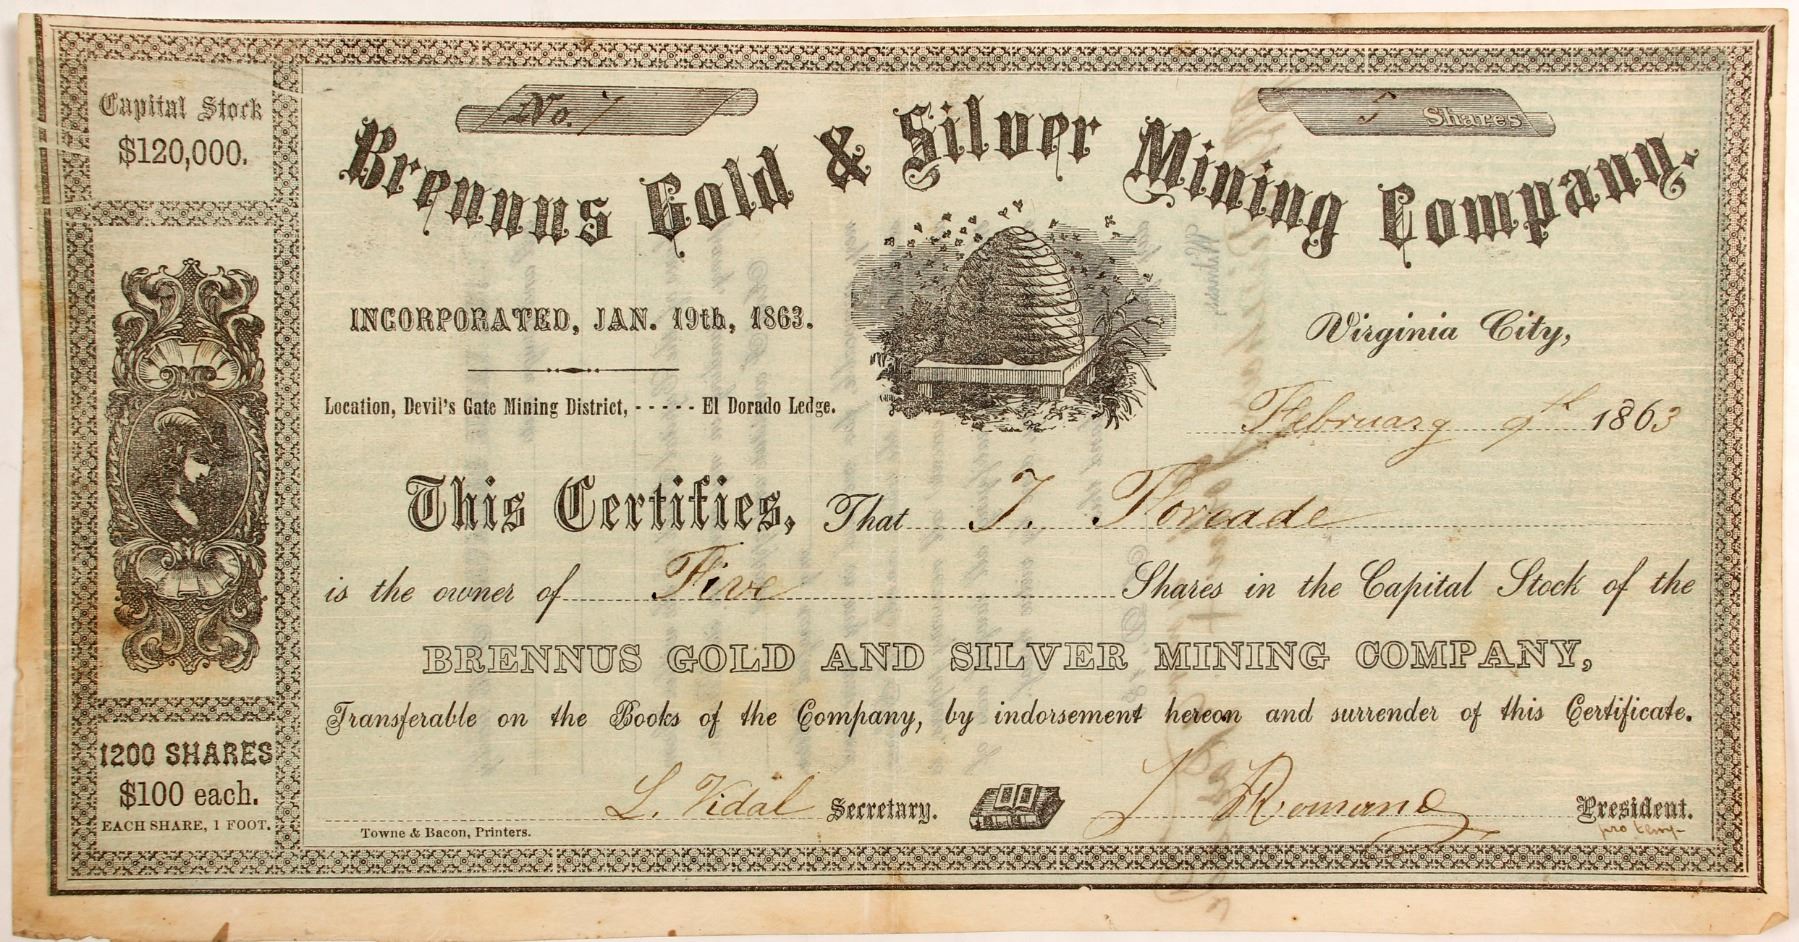 Capital Stock
$120,000.
No. 7
5 Shares
Brennus Gold & Silver Mining Company.
INCORPORATED, JAN. 19th, 1863.
Virginia City,
Location, Devil's Gate Mining District, - - - - - El Dorado Ledge.
February 9th 1863
This Certifies, That T. Forcade
is the owner of Five Shares in the Capital Stock of the
BRENNUS GOLD AND SILVER MINING COMPANY,
Transferable on the Books of the Company, by indorsement hereon and surrender of this Certificate.
1200 SHARES
$100 each.
EACH SHARE, 1 FOOT.
L. Vidal Secretary.
J Romano President.
pro temp
Towne & Bacon, Printers.